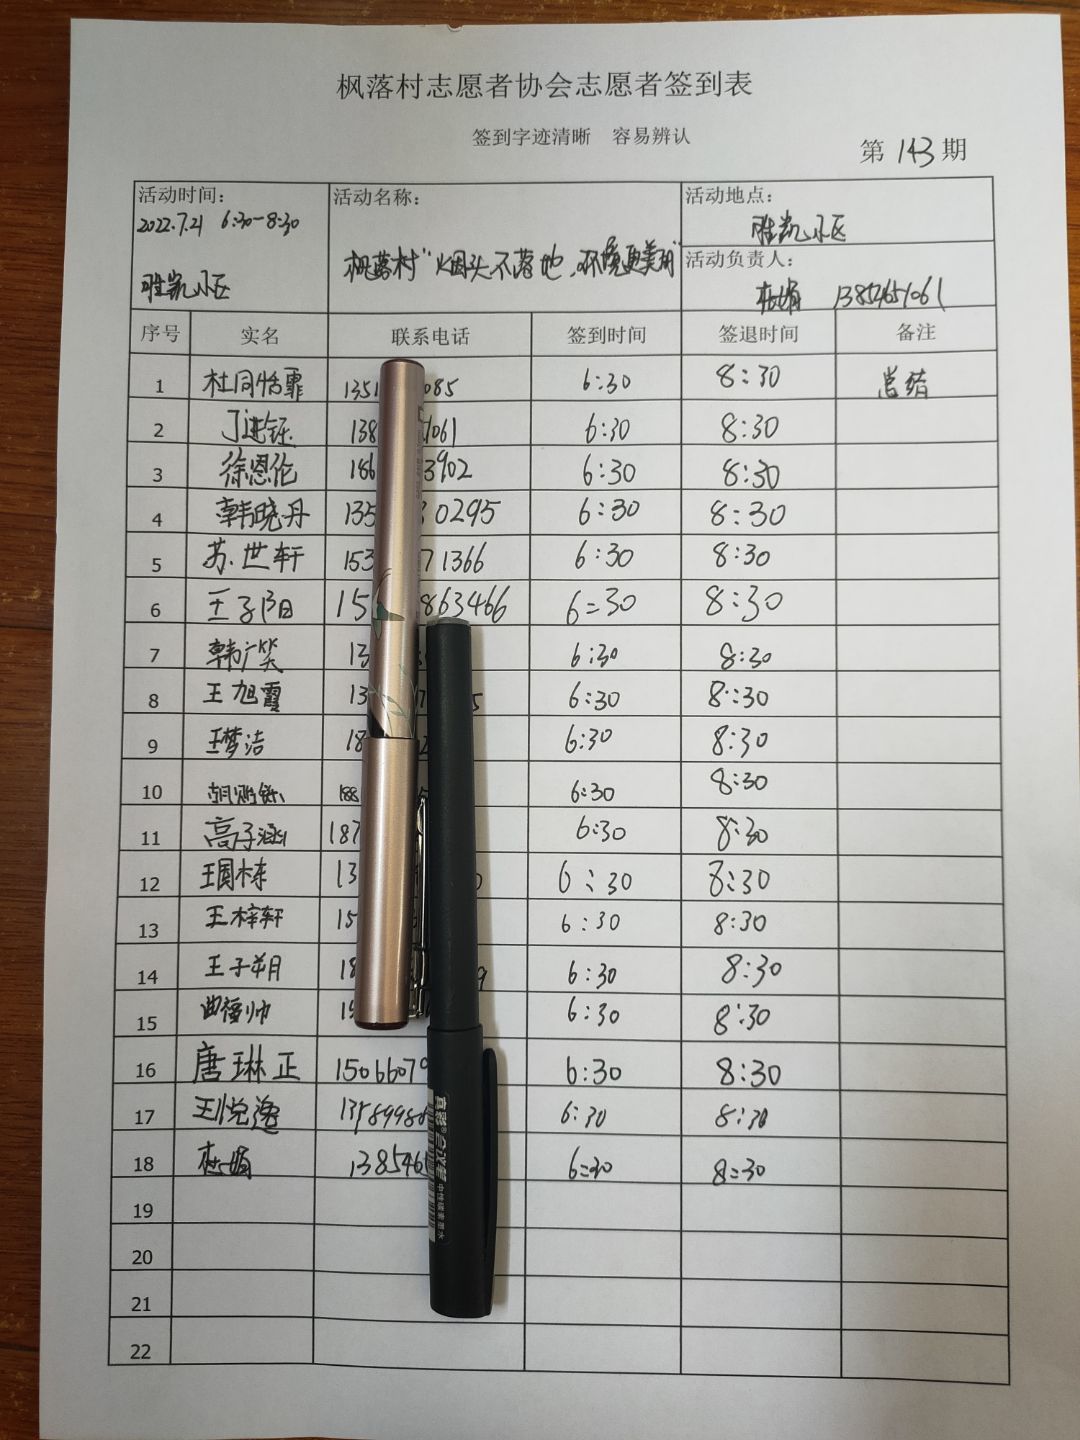 枫落村志愿者协会志愿者签到表
签到字迹清晰 容易辨认
第 143 期
活动时间：
2022.7.21 6:30-8:30
胜凯小区
活动名称：
枫落村"烟头不落地，环境更美丽"
活动地点：
胜凯小区
活动负责人：
13854651061
序号 实名 联系电话 签到时间 签退时间 备注
1 杜同恬霏 1351 085 6:30 8:30 总结
2 丁进钰 138 1061 6:30 8:30
3 徐恩伦 186 3902 6:30 8:30
4 韩晓丹 135 0295 6:30 8:30
5 苏世轩 153 71366 6:30 8:30
6 王子阳 15 863466 6=30 8:30
7 韩广笑 13 6:30 8:30
8 王旭霞 13 5 6:30 8:30
9 王梦洁 18 2 6:30 8:30
10 188 6:30 8:30
11 高子涵 187 6:30 8:30
12 王国栋 13 6:30 8:30
13 王梓轩 15 6:30 8:30
14 王子朔 18 9 6:30 8:30
15 曲福帅 15 6:30 8:30
16 唐琳正 15066079 6:30 8:30
17 王悦 1358998 6:30 8:30
18 138546 6=30 8=30
19
20
21
22
真彩® 会议笔 中性碳素墨水